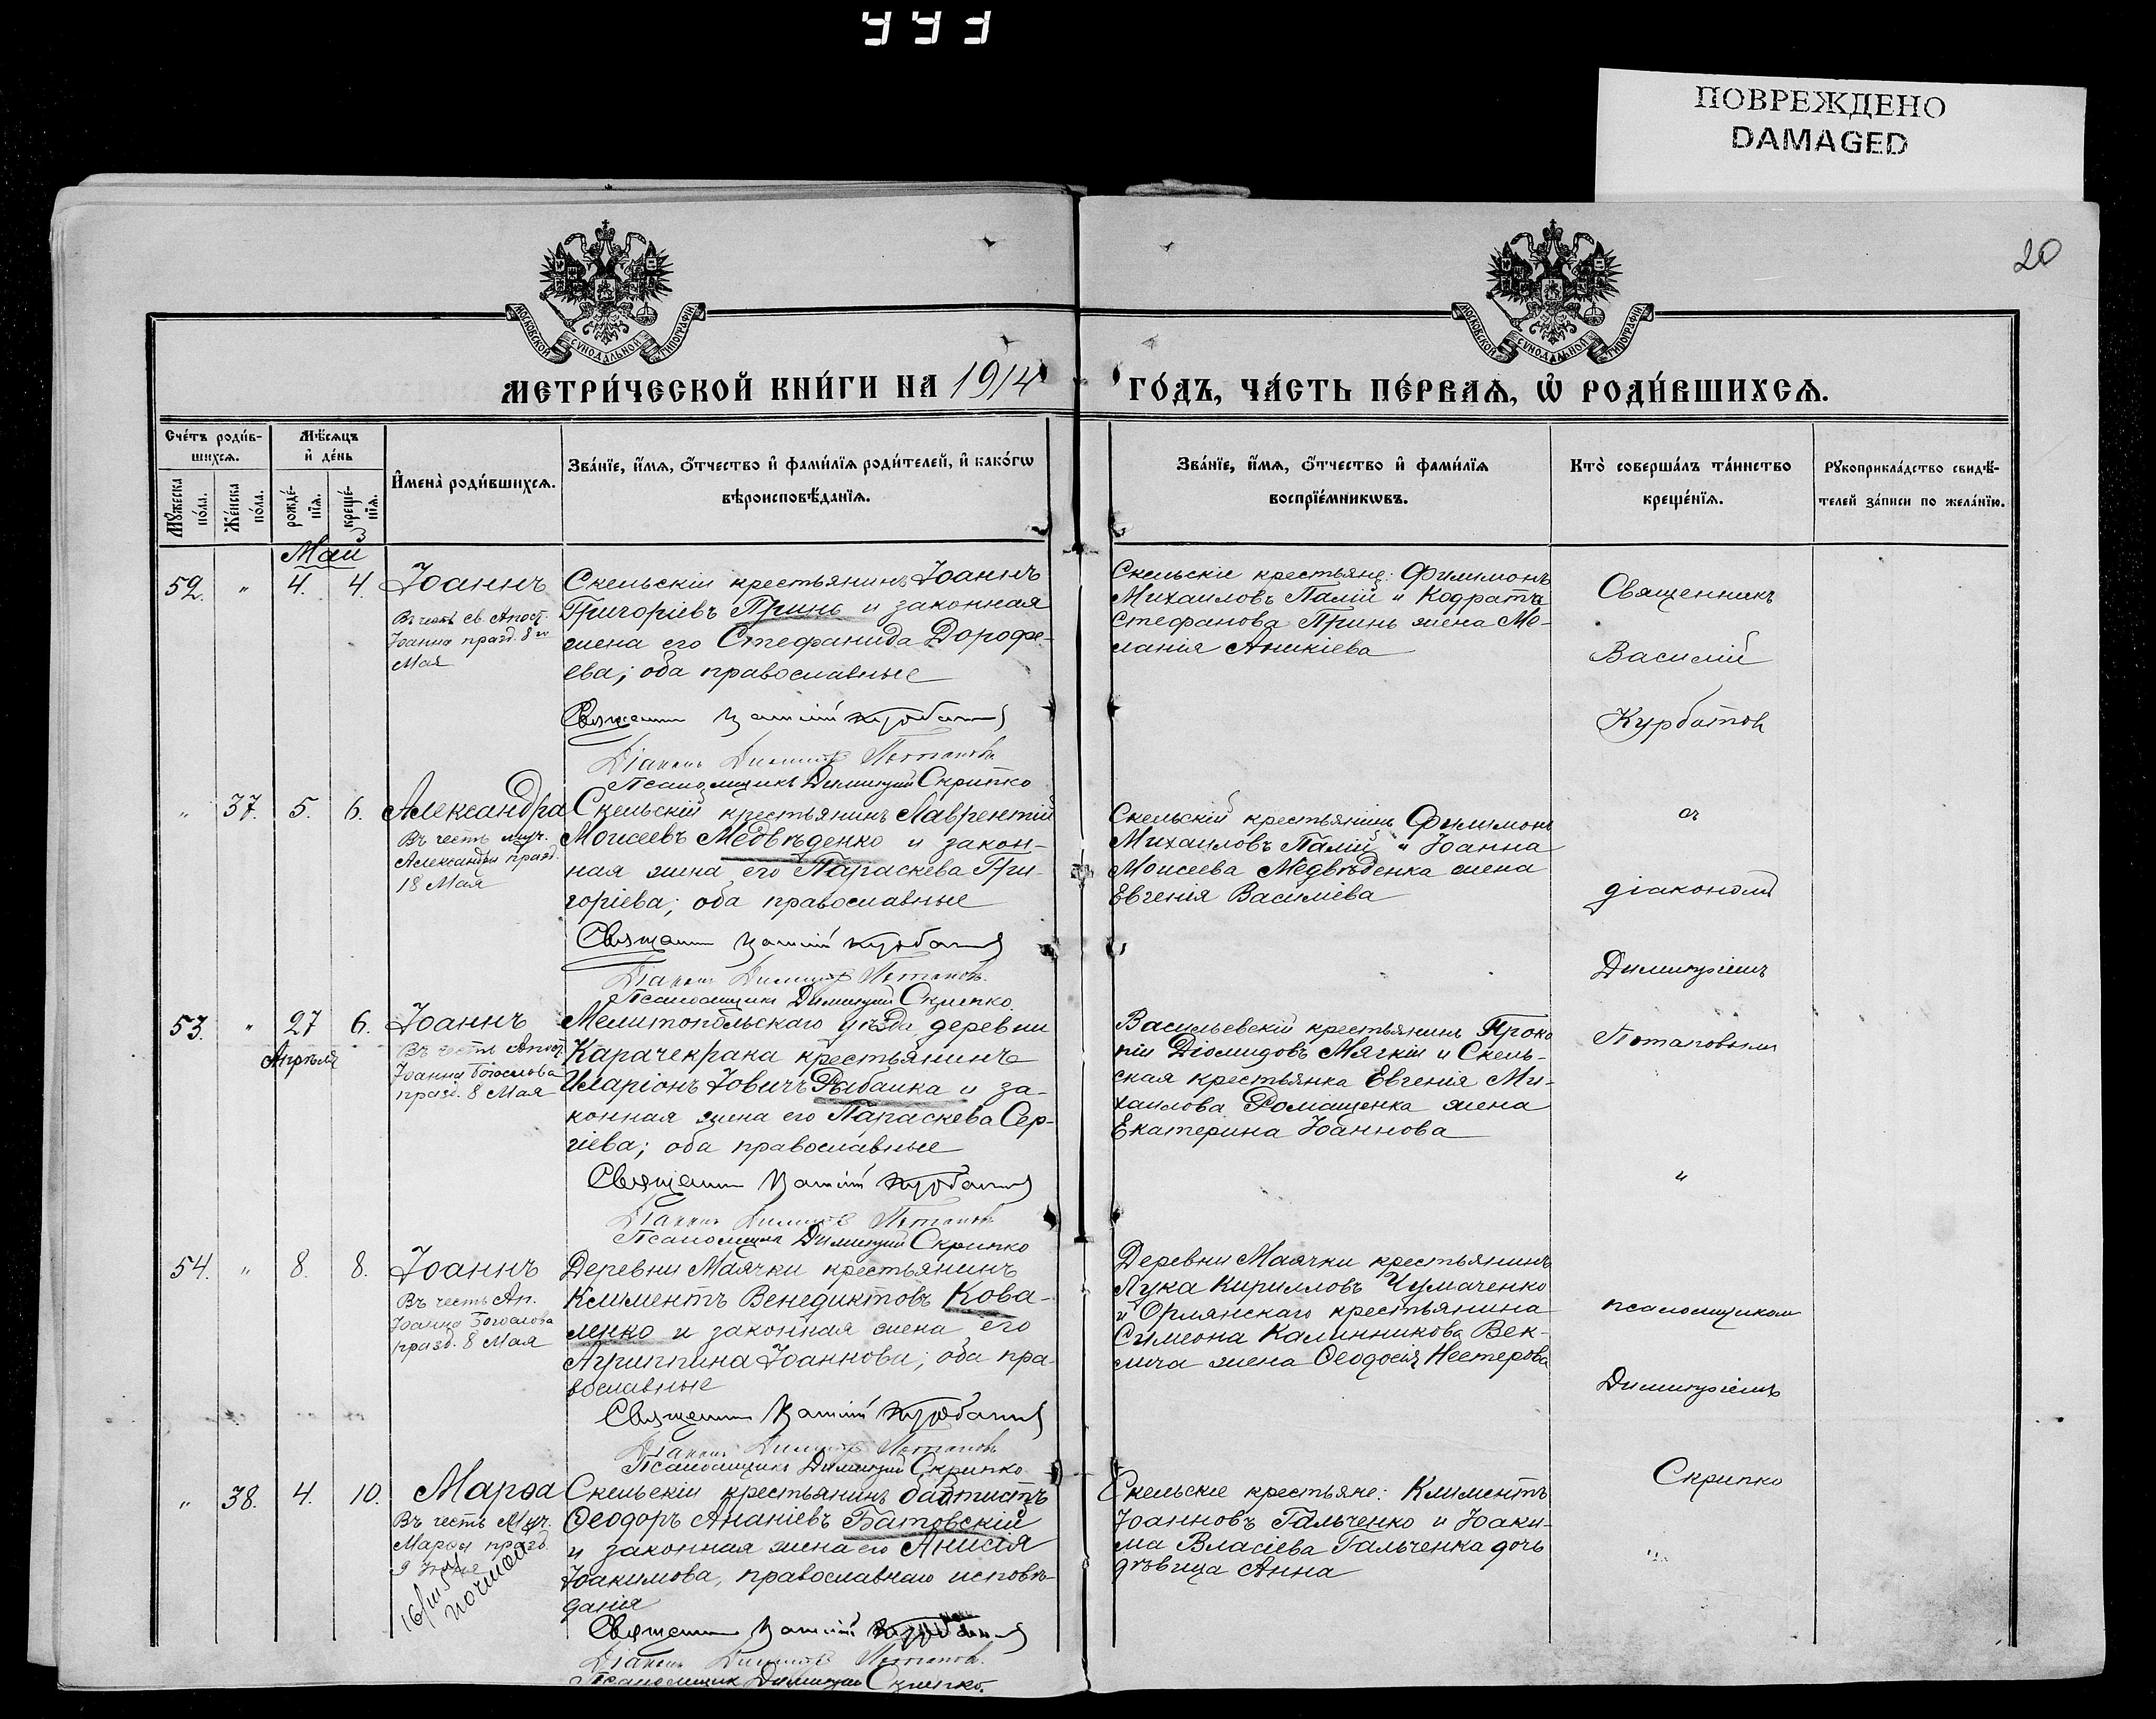 ПОВРЕЖДЕНО
DAMAGED
20
МОСКОВСКОЙ СУНОДАЛЬНОЙ ТИПОГРАФІИ
МОСКОВСКОЙ СУНОДАЛЬНОЙ ТИПОГРАФІИ
МЕТРИ́ЧЕСКОЙ КНИ́ГИ НА 1914
ГО́ДЪ, ЧА́СТЬ ПЕ́РВАѦ, Ѡ҆ РОДИ́ВШИХСѦ.
Сче́тъ роди́в-
шихсѧ.
Мѣ́сѧцъ
и҆ де́нь
Мꙋ́жеска
по́ла.
Же́нска
по́ла.
рожде́-
нїѧ.
креще́-
нїѧ.
И҆мена̀ роди́вшихсѧ.
Зва́нїе, и҆́мѧ, ѻ҆́тчество и҆ фами́лїѧ роди́телей, и҆ како́гѡ
вѣроисповѣ́данїѧ.
Зва́нїе, и҆́мѧ, ѻ҆́тчество и҆ фами́лїѧ
воспрїе́мникѡвъ.
Кто̀ соверша́лъ та́инство
креще́нїѧ.
Рꙋкоприкла́дство свидѣ́-
телей за́писи по жела́нїю.
Май
52. " 4. 4. Іоаннъ
Въ честь св. Апост.
Іоанна празд. 8го
Мая
Скельскій крестьянинъ Іоаннъ
Григоріевъ Принь и законная
жена его Стефанида Дорофе-
ева; оба православные
Священникъ Василій Курбатовъ
Діаконъ Димитрій Потаповъ
Псаломщикъ Димитрій Скрипко
Скельскіе крестьяне: Филимонъ
Михаиловъ Палій и Кодрата
Стефанова Принь жена Ме-
ланія Аникіева
Священникъ
Василій
Курбатовъ
" 37. 5. 6. Александра
Въ честь муч.
Александры празд.
18 Мая
Скельскій крестьянинъ Лаврентій
Моисеевъ Медвѣденко и закон-
ная жена его Параскева Гри-
горіева; оба православные
Священникъ Василій Курбатовъ
Діаконъ Димитрій Потаповъ.
Псаломщикъ Димитрій Скрипко
Скельскій крестьянинъ Филимонъ
Михаиловъ Палій и Іоанна
Моисеева Медвѣденка жена
Евгенія Василіева
съ
діакономъ
Димитріемъ
53. " 27 6. Іоаннъ
Апрѣля
Въ честь Апост.
Іоанна Богослова
празд. 8 Мая
Мелитопольскаго уѣзда деревни
Карачекрака крестьянинъ
Иларіонъ Іовичъ Рыбалка и за-
конная жена его Параскева Сер-
гіева; оба православные
Священникъ Василій Курбатовъ
Діаконъ Димитрій Потаповъ
Псаломщикъ Димитрій Скрипко
Васильевскій крестьянинъ Проко
пій Діомидовъ Мягкій и Скель-
ская крестьянка Евгенія Ми-
хаилова Ромащенка жена
Екатерина Іоаннова
Потаповымъ
"
54. " 8. 8. Іоаннъ
Въ честь Ап.
Іоанна Богослова
празд. 8 Мая
Деревни Маячки крестьянинъ
Климентъ Венедиктовъ Кова-
ленко и законная жена его
Агриппина Іоаннова; оба пра-
вославные
Священникъ Василій Курбатовъ
Діаконъ Димитрій Потаповъ
Псаломщикъ Димитрій Скрипко
Деревни Маячки крестьянинъ
Лука Кирилловъ Чумаченко
и Орлянскаго крестьянина
Симеона Калинникова Век-
лича жена Ѳеодосія Нестерова
псаломщикомъ
Димитріемъ
Скрипко
" 38. 4. 10. Марѳа
Въ честь Муч.
Марѳы празд.
9 Іюня
почтой
Скельскій крестьянинъ баптистъ
Ѳеодоръ Ананіевъ Батовскій
и законная жена его Анисія
Іоакимова, православнаго исповѣ-
данія
Священникъ Василій Курбатовъ
Діаконъ Димитрій Потаповъ.
Псаломщикъ Димитрій Скрипко.
Скельскіе крестьяне: Климентъ
Іоанновъ Гальченко и Іоаки-
ма Власіева Гальченка дочь
дѣвица Анна
"